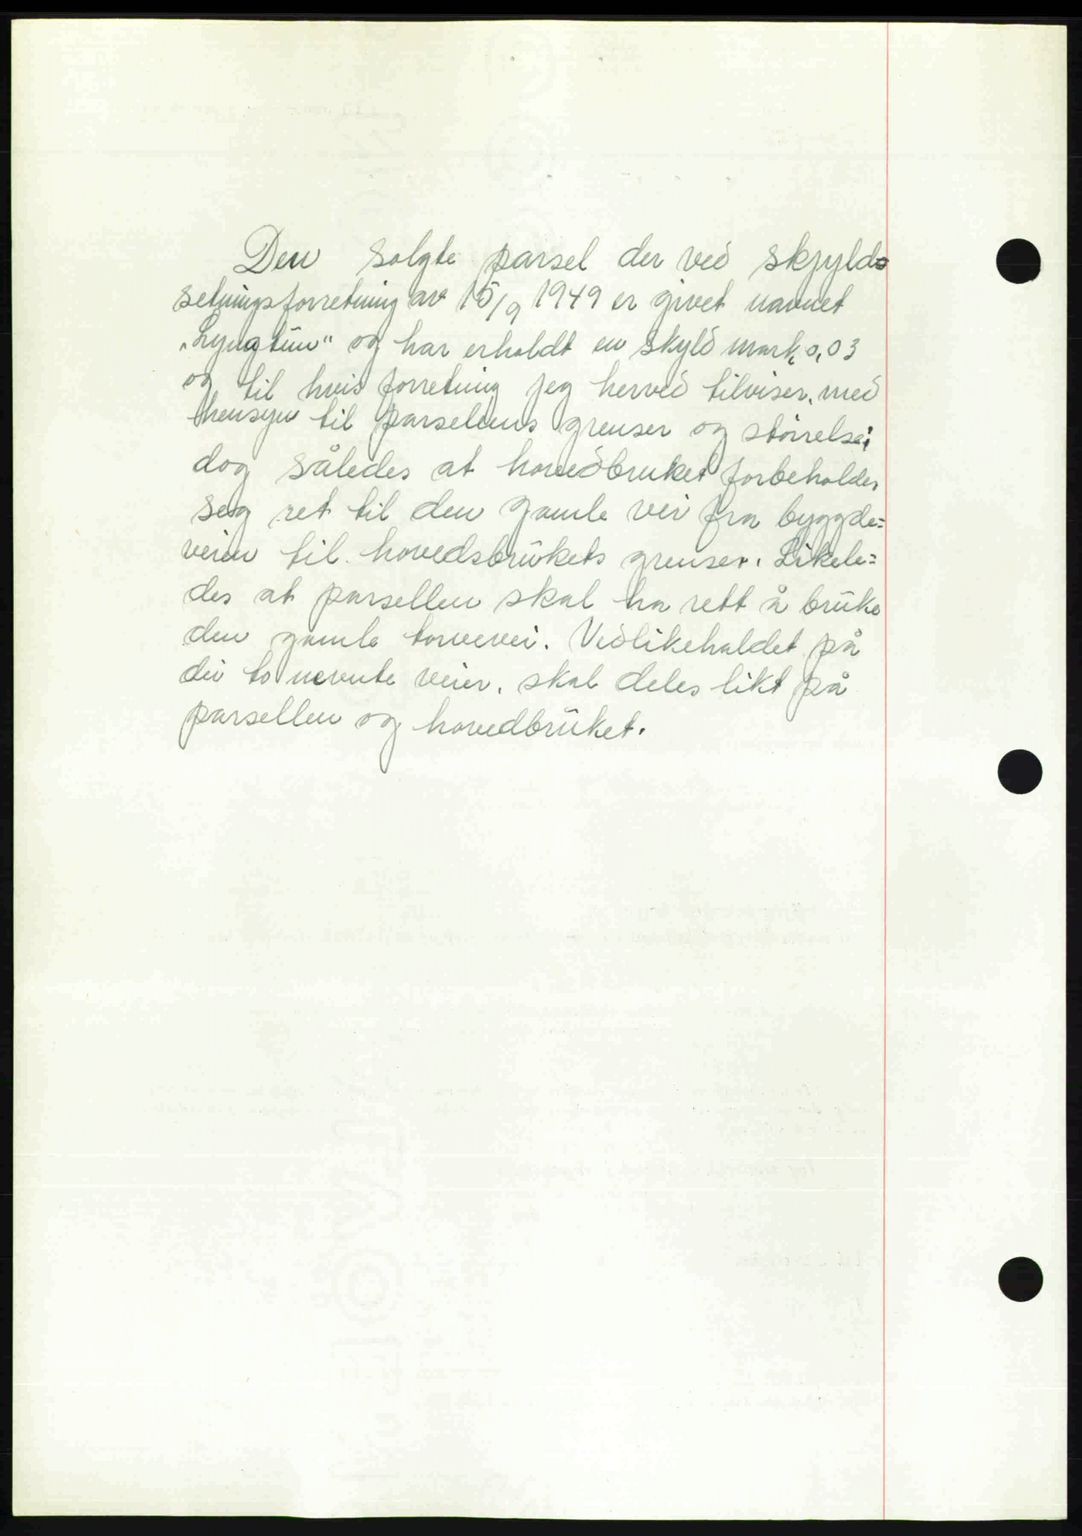 Den solgte parsel der ved skjyld=
setningsforretning av 15/9 1949 er givet navnet
"Lyngtün" og har erholdt en skyld mark 0,03
og til hvis forretning jeg herved tilviser, med
hensyn til parselens grenser og størrelse;
dog således at hovedbruket forbeholder
seg ret til den gamle vei fra byggde=
veien til hovedsbrükets grenser. Likele=
des at parsellen skal ha rett å brüke
den gamle torvevei. Vedlikeholdet på
dei to nevnte veier, skal deles likt på
parsellen og hovedbrüket.